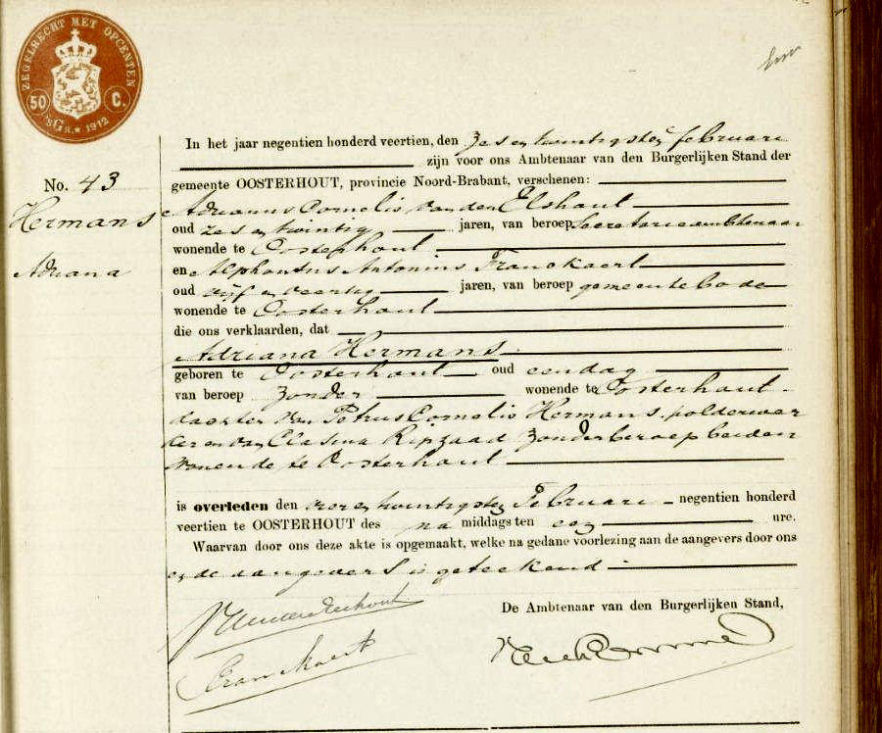 ZEGELRECHT MET OPCENTEN
50 C.
'sGR. * 1912
In het jaar negentien honderd veertien, den zes en twintigsten februari
zijn voor ons Ambtenaar van den Burgerlijken Stand der
No. 43
gemeente OOSTERHOUT, provincie Noord-Brabant, verschenen:
Hermans
Adrianus Cornelis van den Elshout
oud zes en twintig jaren, van beroep Secretarieambtenaar
wonende te Oosterhout
Adriana
en Alphonsus Antonius Franckaert
oud vijf en veertig jaren, van beroep gemeentebode
wonende te Oosterhout
die ons verklaarden, dat
Adriana Hermans
geboren te Oosterhout oud een dag
van beroep zonder wonende te Oosterhout
dochter van Petrus Cornelis Hermans, polderwer
ker en van Clasina Ripzaad zonder beroep beiden
wonende te Oosterhout
is overleden den vier en twintigsten Februari negentien honderd
veertien te OOSTERHOUT des na middags ten een ure.
Waarvan door ons deze akte is opgemaakt, welke na gedane voorlezing aan de aangevers door ons
en de aangevers is geteekend
De Ambtenaar van den Burgerlijken Stand,